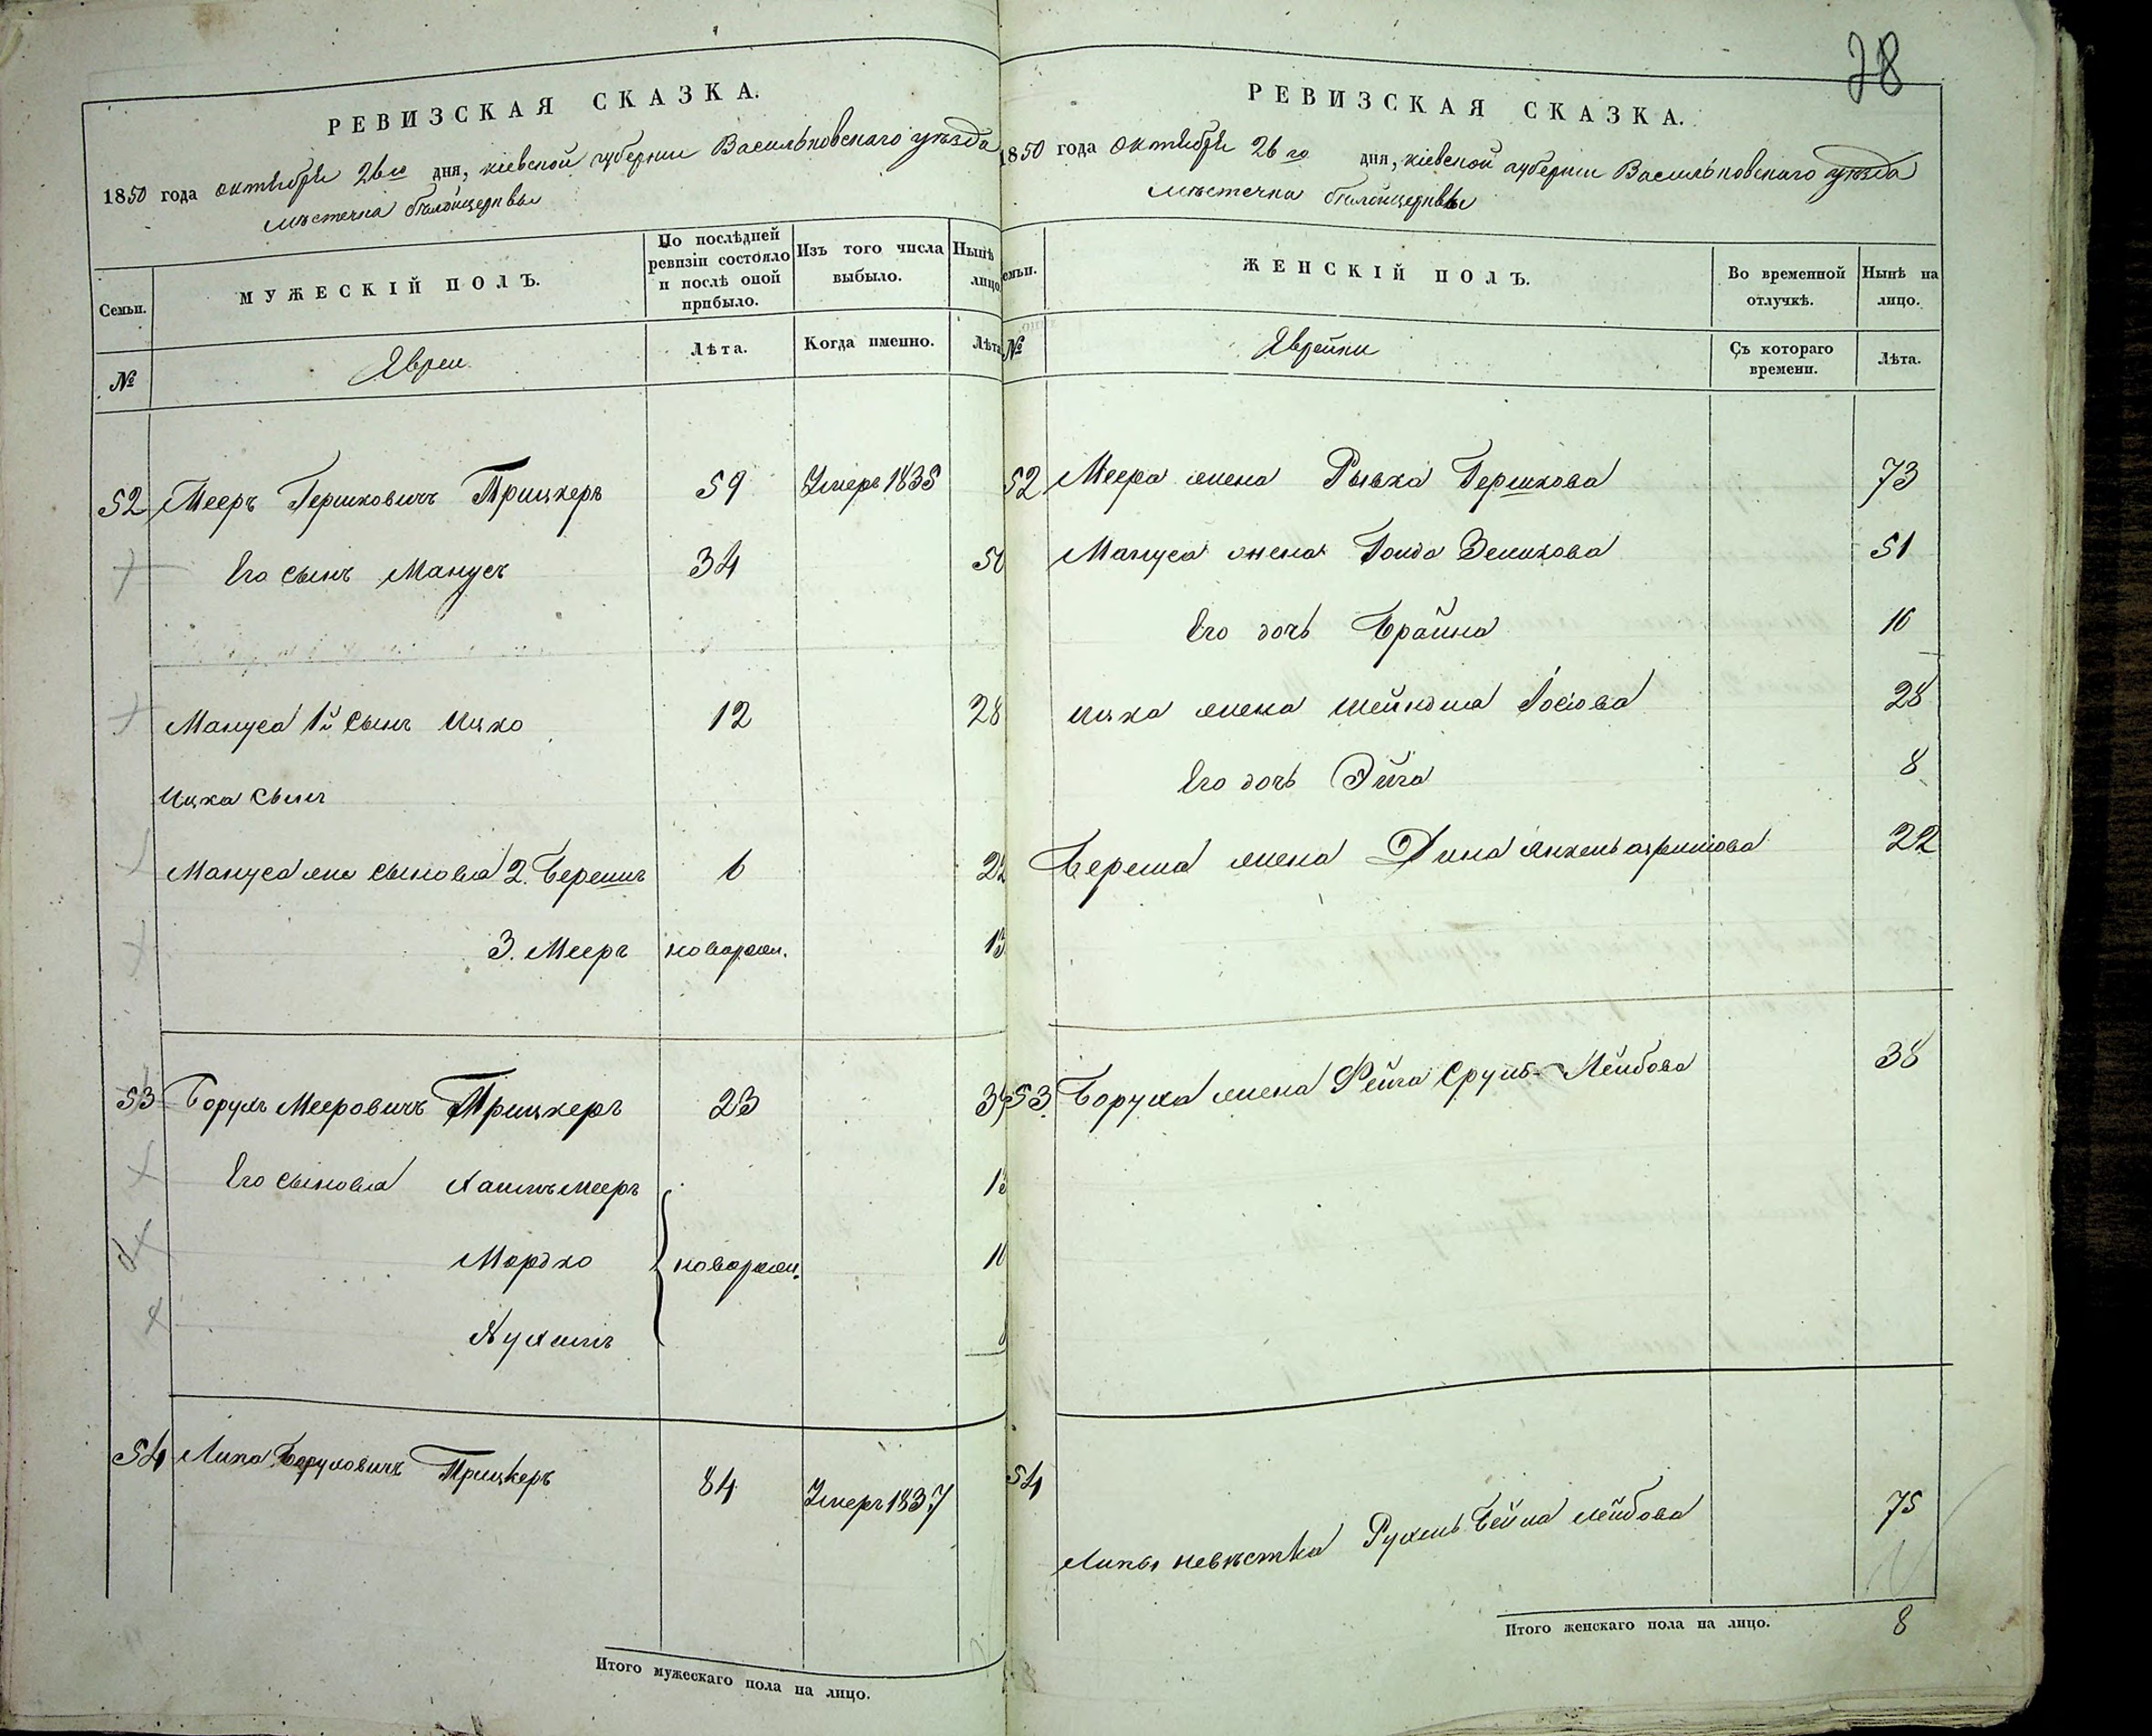 28
РЕВИЗСКАЯ СКАЗКА.
1850 года октября 26го дня, кіевской губерніи Васильковскаго уѣзда
мѣстечка бѣлойцерквы
Семьи. МУЖЕСКІЙ ПОЛЪ. По послѣдней ревизіи состояло и послѣ оной прибыло. Изъ того числа выбыло. Нынѣ лицо
№ Явреи Лѣта. Когда именно. Лѣта
52 Мееръ Гершковичъ Трицкеръ 59 Умеръ 1835
Его сынъ Манусъ 34 50
Мануса 1й сынъ Ицко 12 28
Ицка сынъ
Мануса сыновья 2. Берешъ 6 22
3. Мееръ новорож. 15
53 Борухъ Мееровичъ Трицкеръ 23 39
Его сыновья Хаимъ мееръ 15
Мордко новорож. 10
Нухимъ
54 Липа Боруховичъ Трицкеръ 84 Умеръ 1837
Итого мужескаго пола на лицо.
РЕВИЗСКАЯ СКАЗКА.
1850 года октября 26го дня, кіевской губерніи Васильковскаго уѣзда
мѣстечка бѣлойцерквы
семьи. ЖЕНСКІЙ ПОЛЪ. Во временной отлучкѣ. Нынѣ на лицо.
№ Яврейки Съ котораго времени. Лѣта.
52 Меера жена Рывка Гершкова 73
Мануса жена Зеликова 51
Его дочь Брайна 16
Ицка жена шейндля Іосіова 28
Его дочь Эйга 8
Береша жена Дина 22
53 Боруха жена Фейга Сруль-Лейбова 38
54
Липы невѣстка Рухль Бейла лейбова 75
Итого женскаго пола на лицо. 8